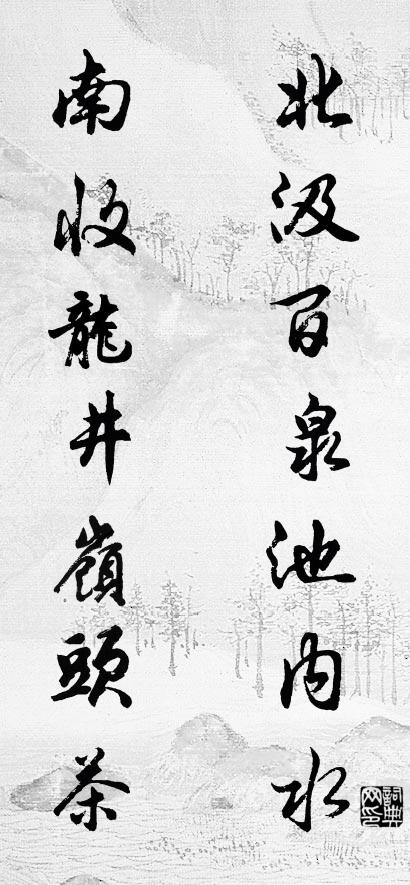 北汲百泉池内水
南收龍井嶺頭茶
詞典網印